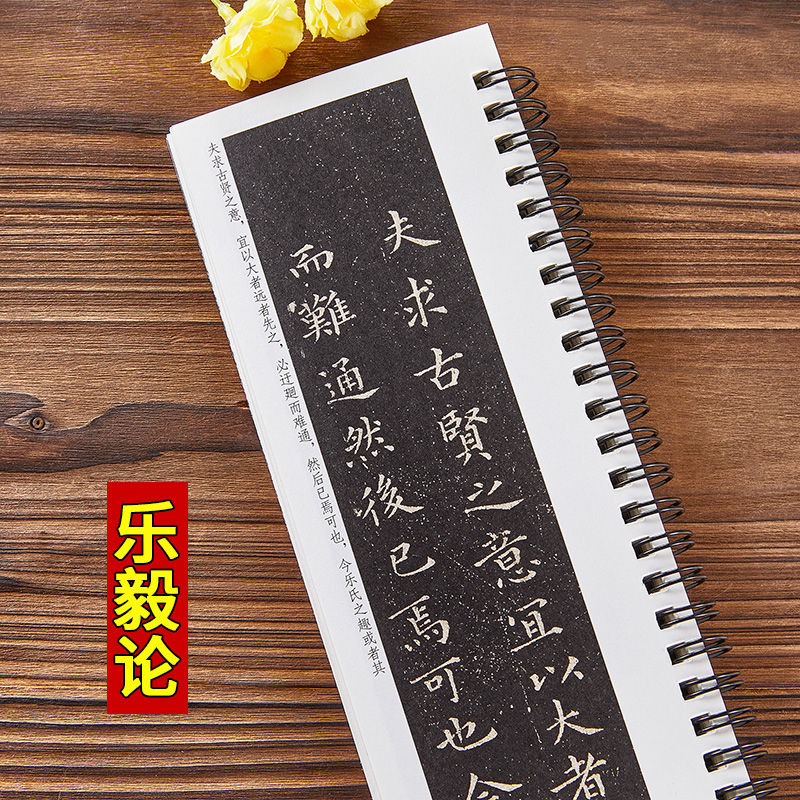 夫求古賢之意宜以大者
而難通然後已焉可也今
夫求古贤之意，宜以大者远者先之，必迂廻而难通，然后已焉可也，今乐氏之趣或者其
乐毅论